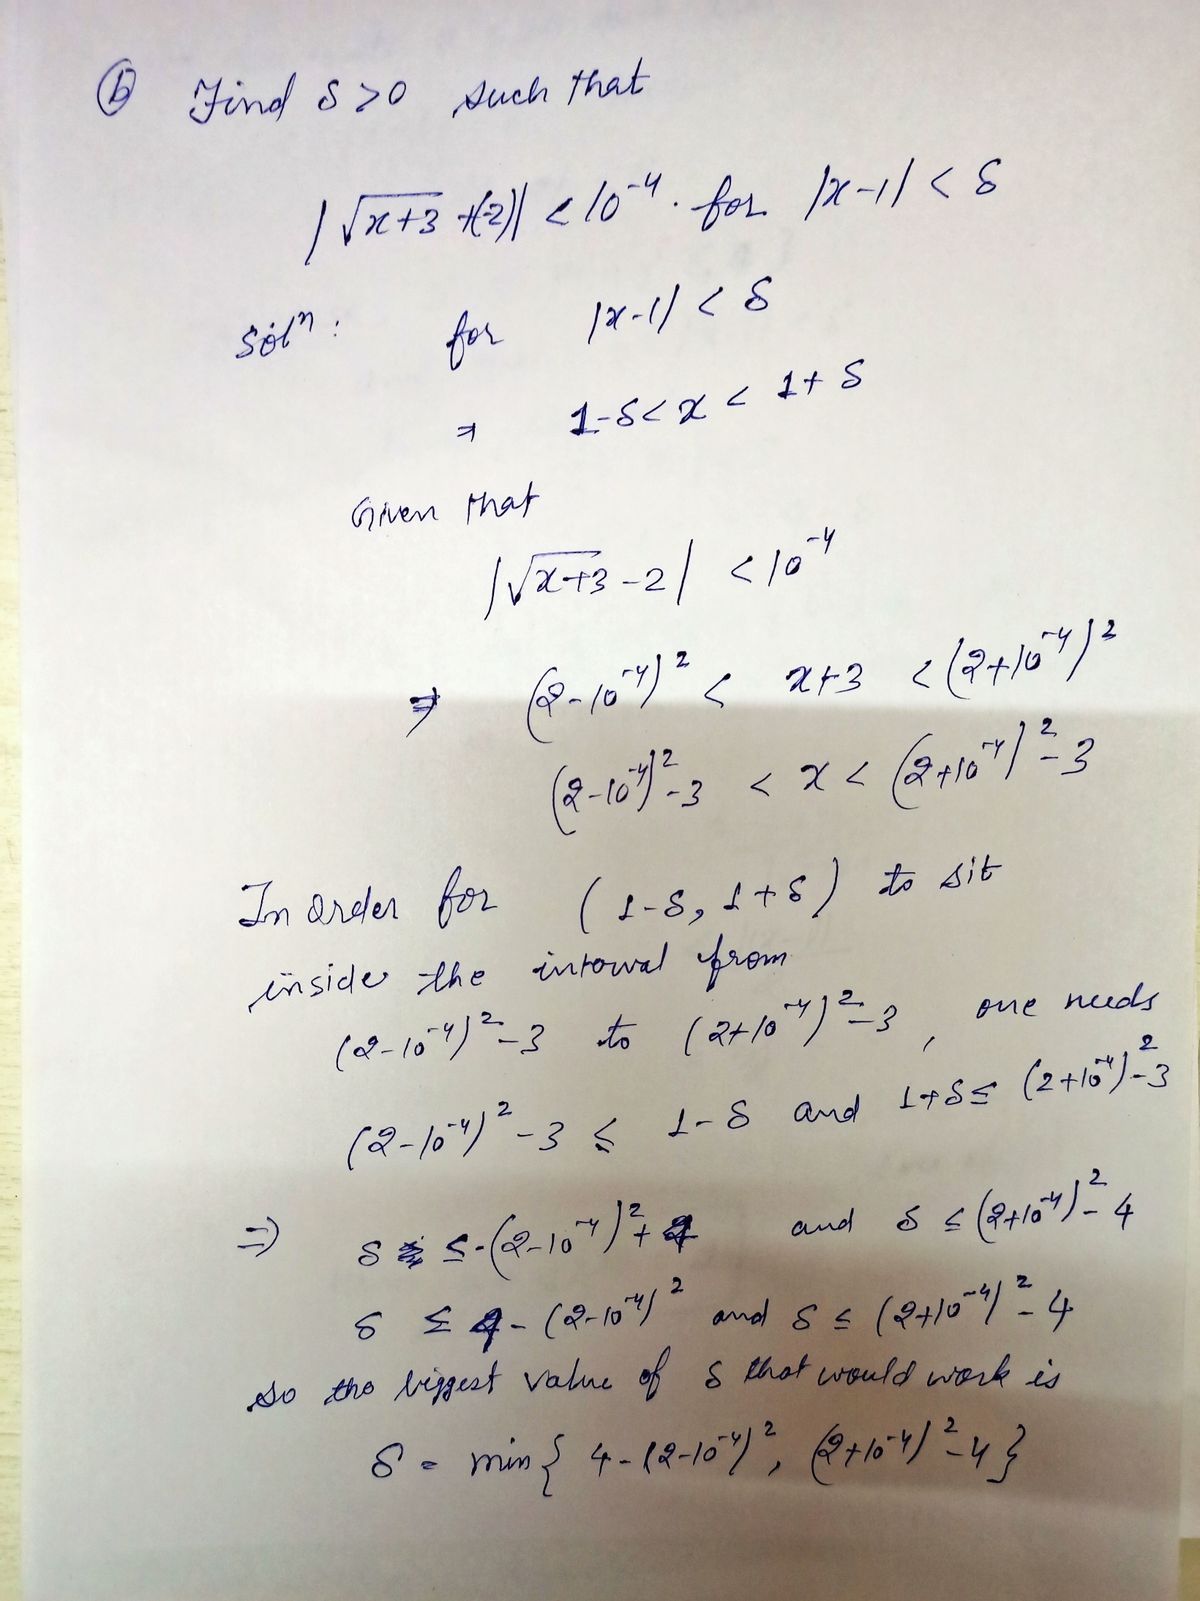 ⓑ Find δ>0 such that
|√x+3 +(-2)| < 10⁻⁴. for |x-1| < δ
Solⁿ : for |x-1| < δ
⇒ 1-δ < x < 1+δ
Given that
|√x+3 - 2| < 10⁻⁴
⇒ (2-10⁻⁴)² < x+3 < (2+10⁻⁴)²
(2-10⁻⁴)²-3 < x < (2+10⁻⁴)²-3
In Order for (1-δ, 1+δ) to sit
inside the interval from
(2-10⁻⁴)²-3 to (2+10⁻⁴)²-3, one needs
(2-10⁻⁴)²-3 ≤ 1-δ and 1+δ ≤ (2+10⁻⁴)²-3
⇒ δ ≤ -(2-10⁻⁴)²+4 and δ ≤ (2+10⁻⁴)²-4
δ ≤ 4-(2-10⁻⁴)² and δ ≤ (2+10⁻⁴)²-4
so the biggest value of δ that would work is
δ = min{ 4-(2-10⁻⁴)², (2+10⁻⁴)²-4}